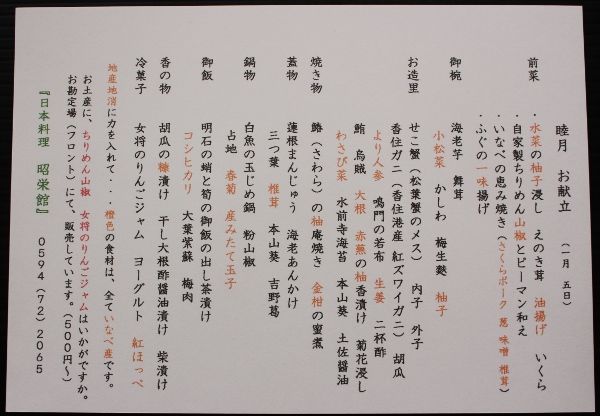 睦月　お献立　（一月　五日）
前菜　・水菜の柚子浸し　えのき茸　油揚げ　いくら
・自家製ちりめん山椒とピーマン和え
・いなべの恵み焼き（さくらポーク　葱　味噌　椎茸）
・ふぐの一味揚げ
御椀　海老芋　舞茸
小松菜　かしわ　梅生麩　柚子
お造里　せこ蟹（松葉蟹のメス）　内子　外子
香住ガニ（香住港産　紅ズワイガニ）　胡瓜
より人参　鳴門の若布　生姜　二杯酢
鮪　烏賊　大根　赤蕪の柚香漬け　菊花浸し
わさび菜　水前寺海苔　本山葵　土佐醤油
焼き物　鰆（さわら）の柚庵焼き　金柑の蜜煮
蓋物　蓮根まんじゅう　海老あんかけ
三つ葉　椎茸　本山葵　吉野葛
鍋物　白魚の玉じめ鍋　粉山椒
占地　春菊　産みたて玉子
御飯　明石の蛸と筍の御飯の出し茶漬け
コシヒカリ　大葉紫蘇　梅肉
香の物　胡瓜の糠漬け　干し大根酢醤油漬け　柴漬け
冷菓子　女将のりんごジャム　ヨーグルト　紅ほっぺ
地産地消に力を入れて・・橙色の食材は、全ていなべ産です。
お土産に、ちりめん山椒　女将のりんごジャムはいかがですか。
お勘定場（フロント）にて、販売しています。（５００円〜）
『日本料理　昭栄館』　０５９４（７２）２０６５